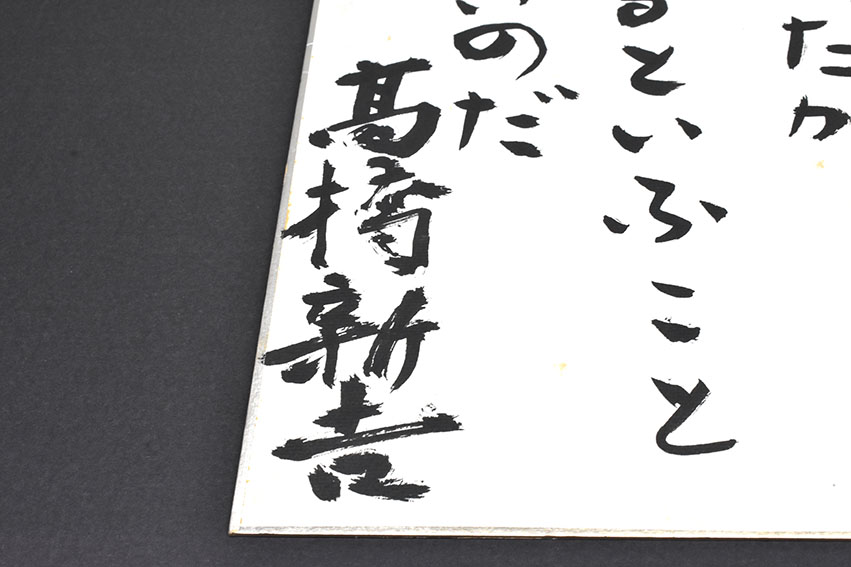 たか
るといふこと
いのだ
高橋新吉